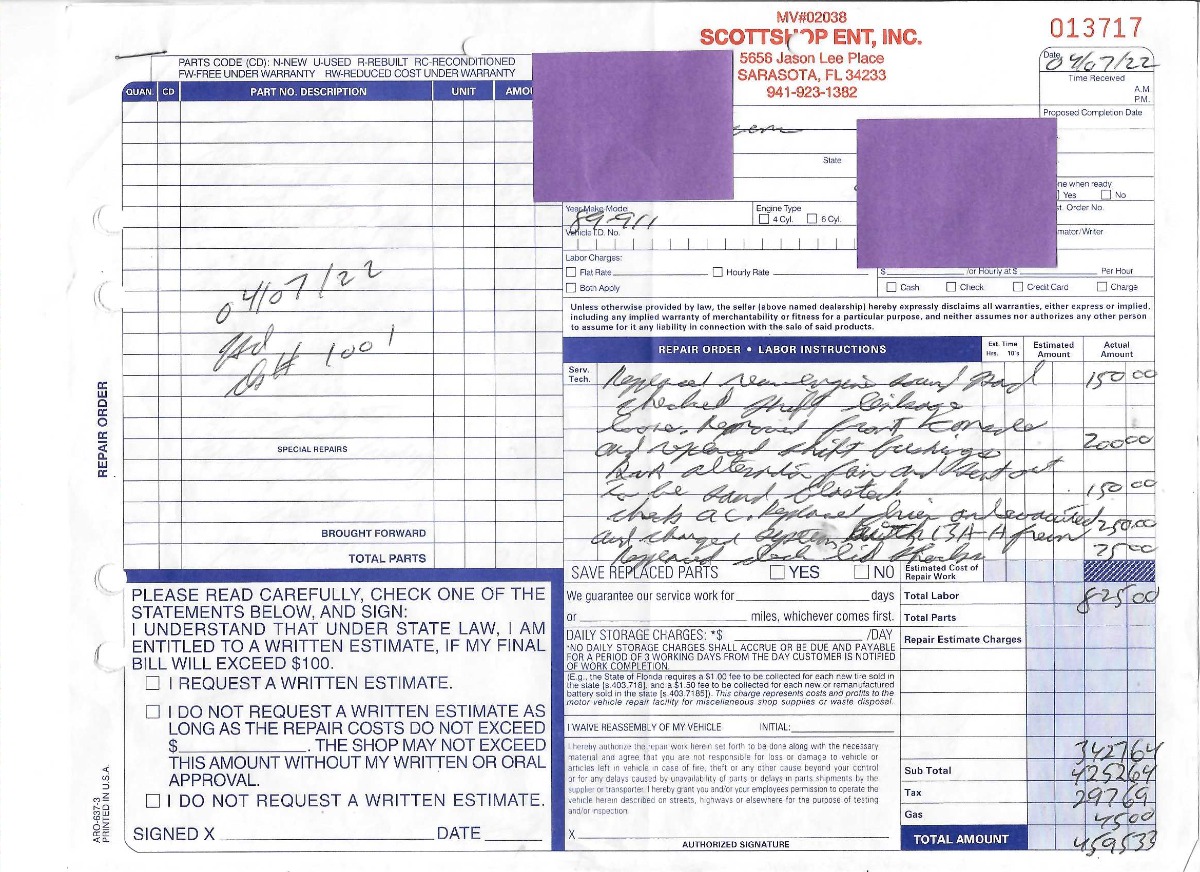 MV#02038
SCOTTSHOP ENT, INC.
5656 Jason Lee Place
SARASOTA, FL 34233
941-923-1382
013717
Date 04/07/22
Time Received
A.M.
P.M.
Proposed Completion Date
PARTS CODE (CD): N-NEW U-USED R-REBUILT RC-RECONDITIONED
FW-FREE UNDER WARRANTY RW-REDUCED COST UNDER WARRANTY
QUAN. CD PART NO. DESCRIPTION UNIT AMOU
04/07/22
# 1001
SPECIAL REPAIRS
BROUGHT FORWARD
TOTAL PARTS
REPAIR ORDER
State
ne when ready
Yes No
t. Order No.
mator/Writer
Year-Make-Model
89-911
Engine Type
4 Cyl. 6 Cyl.
Vehicle I.D. No.
Labor Charges:
Flat Rate Hourly Rate $ for Hourly at $ Per Hour
Both Apply Cash Check Credit Card Charge
Unless otherwise provided by law, the seller (above named dealership) hereby expressly disclaims all warranties, either express or implied,
including any implied warranty of merchantability or fitness for a particular purpose, and neither assumes nor authorizes any other person
to assume for it any liability in connection with the sale of said products.
REPAIR ORDER • LABOR INSTRUCTIONS Est. Time Hrs. 10's Estimated Amount Actual Amount
Serv. Tech.
Replaced rear engine sound pad 150 00
checked shift linkage
loose. Removed front Console
and replaced shift bushings 200 00
alternator fan and sent out
to be sand blasted 150 00
check a.c. Replaced drier and evacuated
and charged system with 134-A freon 250 00
Replaced deck lid shocks 75 00
SAVE REPLACED PARTS YES NO
Estimated Cost of Repair Work
We guarantee our service work for days
or miles, whichever comes first.
DAILY STORAGE CHARGES: *$ /DAY
*NO DAILY STORAGE CHARGES SHALL ACCRUE OR BE DUE AND PAYABLE
FOR A PERIOD OF 3 WORKING DAYS FROM THE DAY CUSTOMER IS NOTIFIED
OF WORK COMPLETION.
(E.g., the State of Florida requires a $1.00 fee to be collected for each new tire sold in
the state [s.403.718], and a $1.50 fee to be collected for each new or remanufactured
battery sold in the state [s.403.7185]). This charge represents costs and profits to the
motor vehicle repair facility for miscellaneous shop supplies or waste disposal.
I WAIVE REASSEMBLY OF MY VEHICLE INITIAL:
I hereby authorize the repair work herein set forth to be done along with the necessary
material and agree that you are not responsible for loss or damage to vehicle or
articles left in vehicle in case of fire, theft or any other cause beyond your control
or for any delays caused by unavailability of parts or delays in parts shipments by the
supplier or transporter. I hereby grant you and/or your employees permission to operate the
vehicle herein described on streets, highways or elsewhere for the purpose of testing
and/or inspection.
X
AUTHORIZED SIGNATURE
Total Labor 825 00
Total Parts
Repair Estimate Charges
3427 64
Sub Total 4252 64
Tax 297 69
Gas 45 00
TOTAL AMOUNT 4595 33
PLEASE READ CAREFULLY, CHECK ONE OF THE
STATEMENTS BELOW, AND SIGN:
I UNDERSTAND THAT UNDER STATE LAW, I AM
ENTITLED TO A WRITTEN ESTIMATE, IF MY FINAL
BILL WILL EXCEED $100.
I REQUEST A WRITTEN ESTIMATE.
I DO NOT REQUEST A WRITTEN ESTIMATE AS
LONG AS THE REPAIR COSTS DO NOT EXCEED
$ . THE SHOP MAY NOT EXCEED
THIS AMOUNT WITHOUT MY WRITTEN OR ORAL
APPROVAL.
I DO NOT REQUEST A WRITTEN ESTIMATE.
SIGNED X DATE
ARO-637-3
PRINTED IN U.S.A.